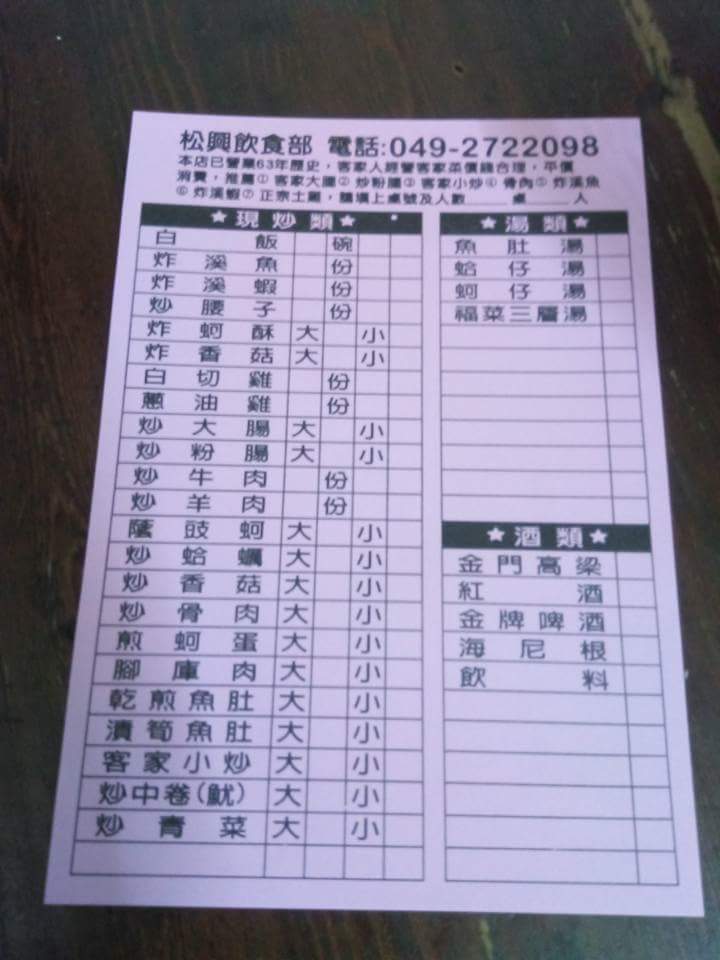 松興飲食部 電話:049-2722098
本店已營業63年歷史，客家人經營客家菜價錢合理，平價
消費，推薦① 客家大腸② 炒粉腸③ 客家小炒④ 骨肉⑤ 炸溪魚
⑥ 炸溪蝦⑦ 正宗土雞，請填上桌號及人數 桌 人
★現炒類★
白飯 碗
炸溪魚 份
炸溪蝦 份
炒腰子 份
炸蚵酥 大 小
炸香菇 大 小
白切雞 份
蔥油雞 份
炒大腸 大 小
炒粉腸 大 小
炒牛肉 份
炒羊肉 份
蔭豉蚵 大 小
炒蛤蠣 大 小
炒香菇 大 小
炒骨肉 大 小
煎蚵蛋 大 小
腳庫肉 大 小
乾煎魚肚 大 小
漬筍魚肚 大 小
客家小炒 大 小
炒中卷(魷) 大 小
炒青菜 大 小
★湯類★
魚肚湯
蛤仔湯
蚵仔湯
福菜三層湯
★酒類★
金門高梁
紅酒
金牌啤酒
海尼根
飲料